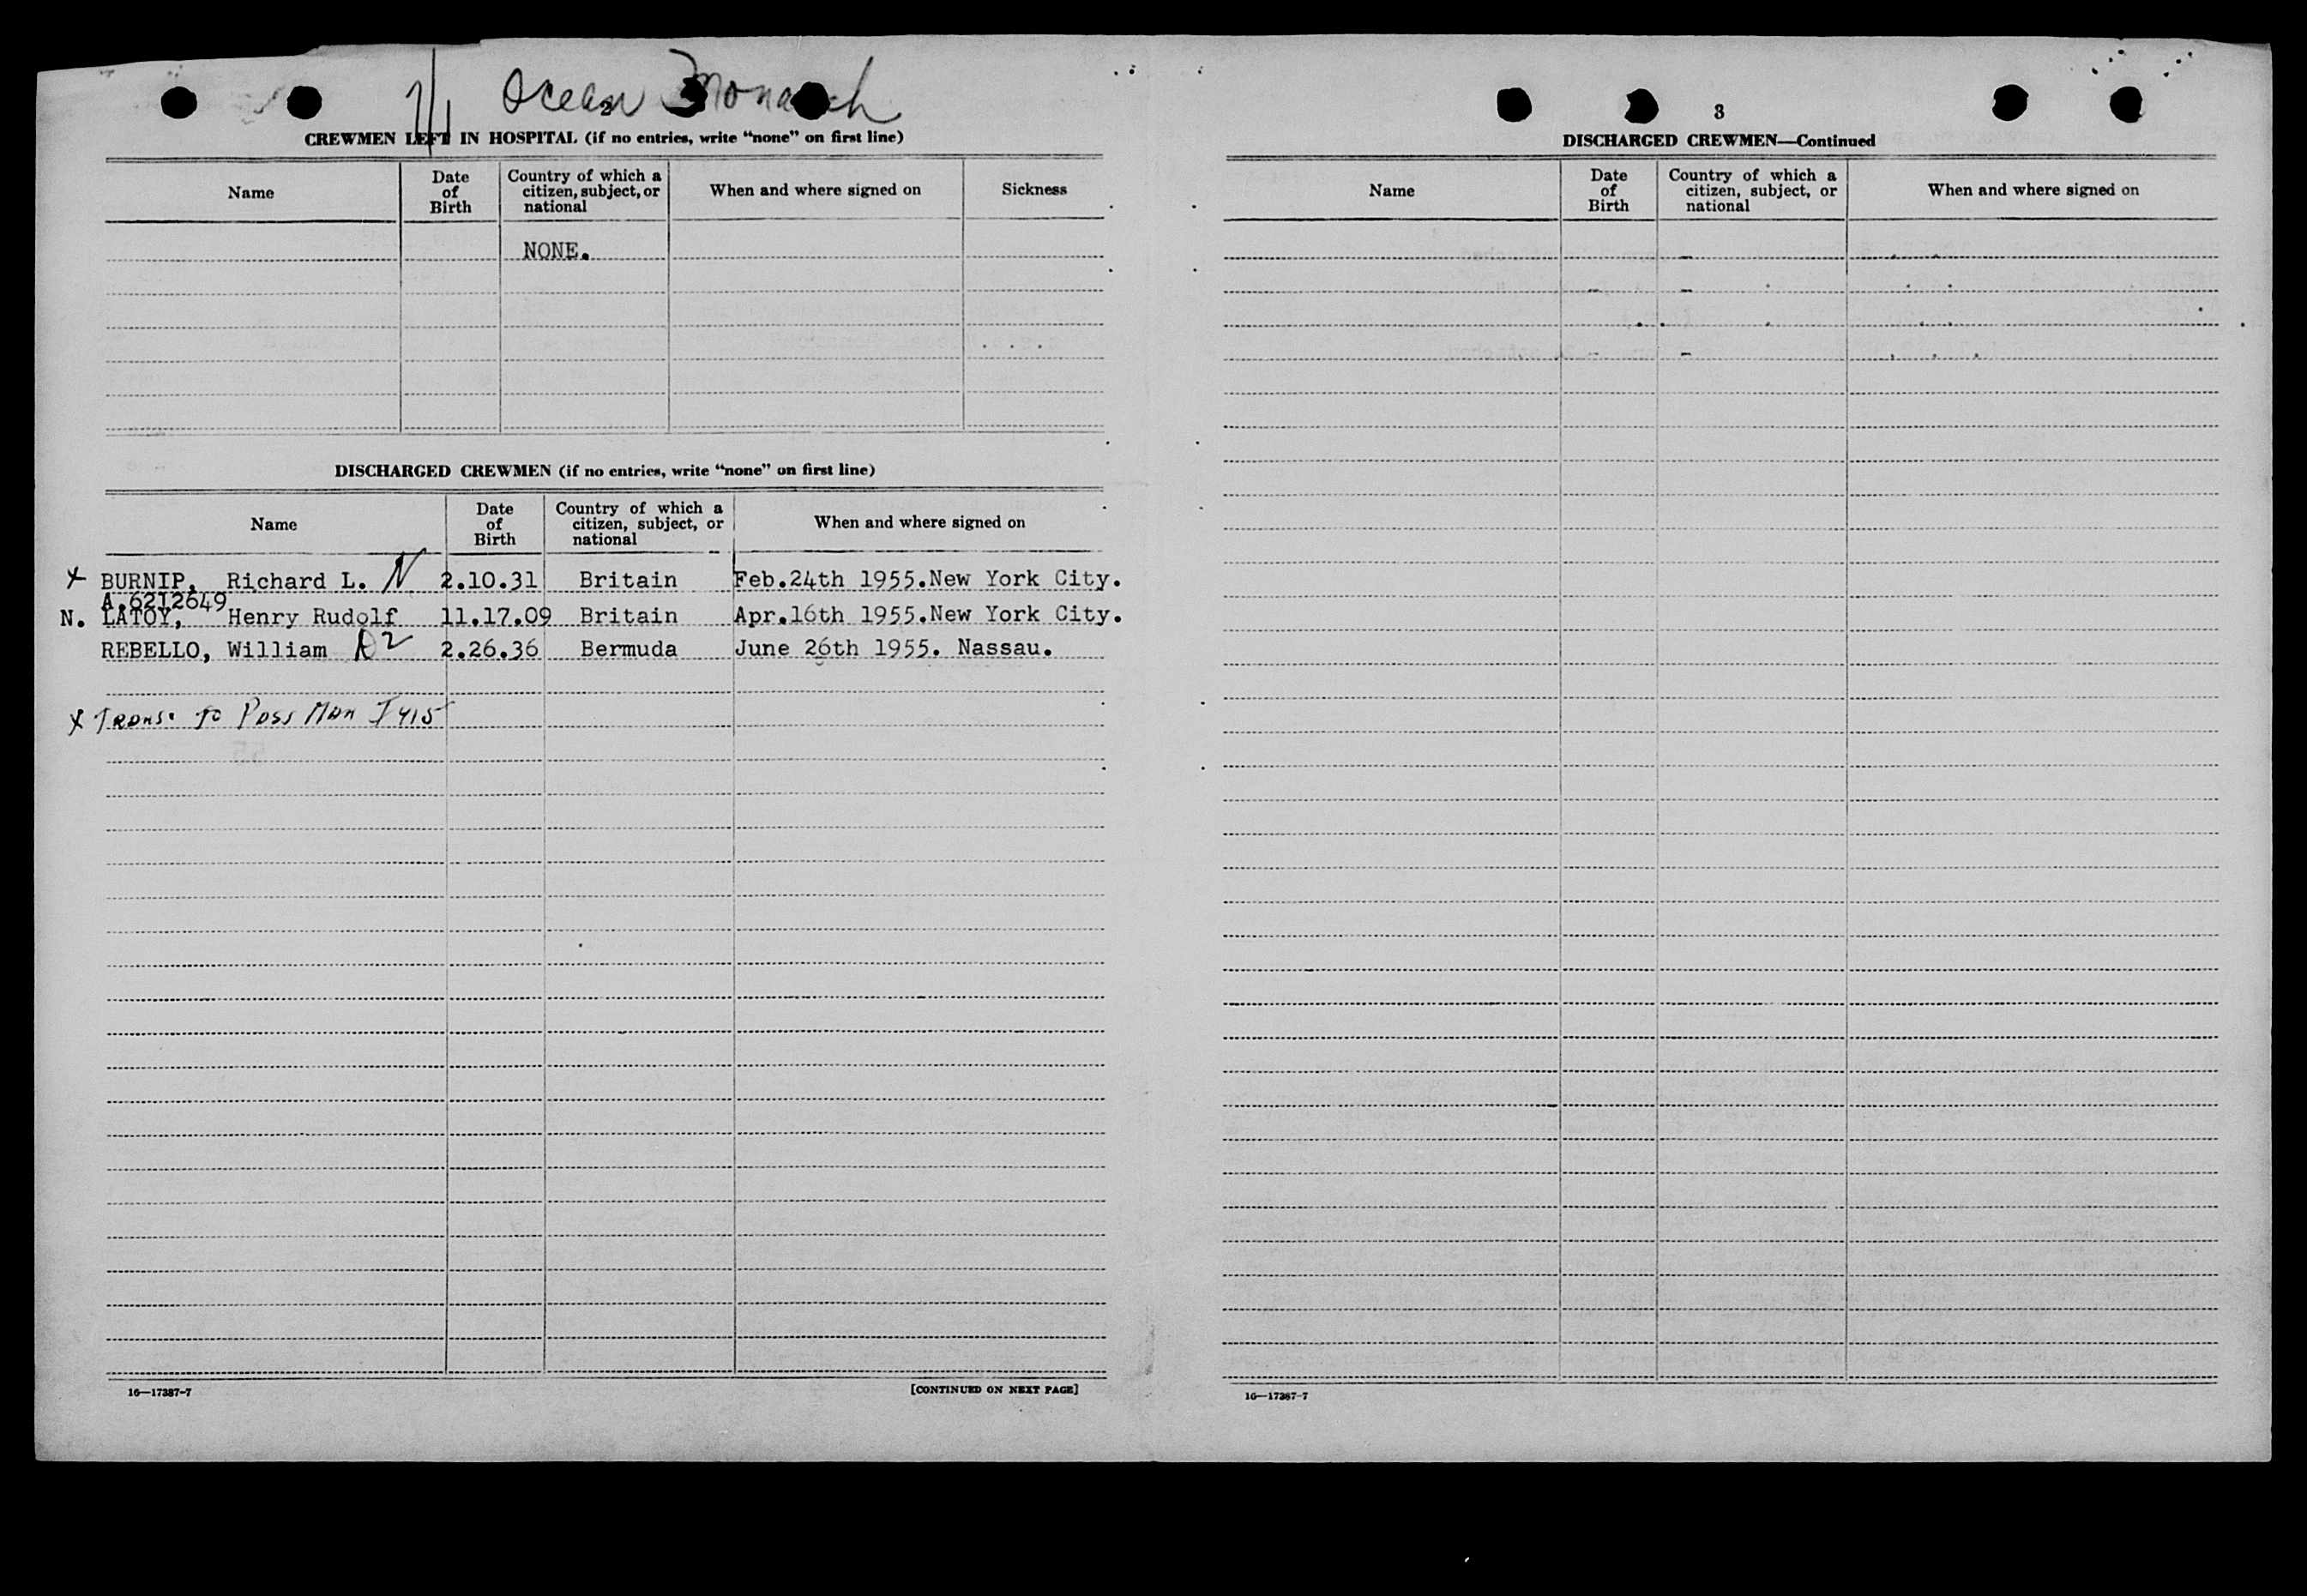 7/1 Ocean Monarch
2
CREWMEN LEFT IN HOSPITAL (if no entries, write “none” on first line)
Name
Date of Birth
Country of which a citizen, subject, or national
When and where signed on
Sickness
NONE.
DISCHARGED CREWMEN (if no entries, write “none” on first line)
Name
Date of Birth
Country of which a citizen, subject, or national
When and where signed on
x BURNIP, Richard L. N 2.10.31 Britain Feb.24th 1955.New York City.
A.6212649
N. LATOY, Henry Rudolf 11.17.09 Britain Apr.16th 1955.New York City.
REBELLO, William R2 2.26.36 Bermuda June 26th 1955. Nassau.
x Trans. to Pass Man I 415
16—17387-7
[CONTINUED ON NEXT PAGE]
3
DISCHARGED CREWMEN—Continued
Name
Date of Birth
Country of which a citizen, subject, or national
When and where signed on
16—17387-7